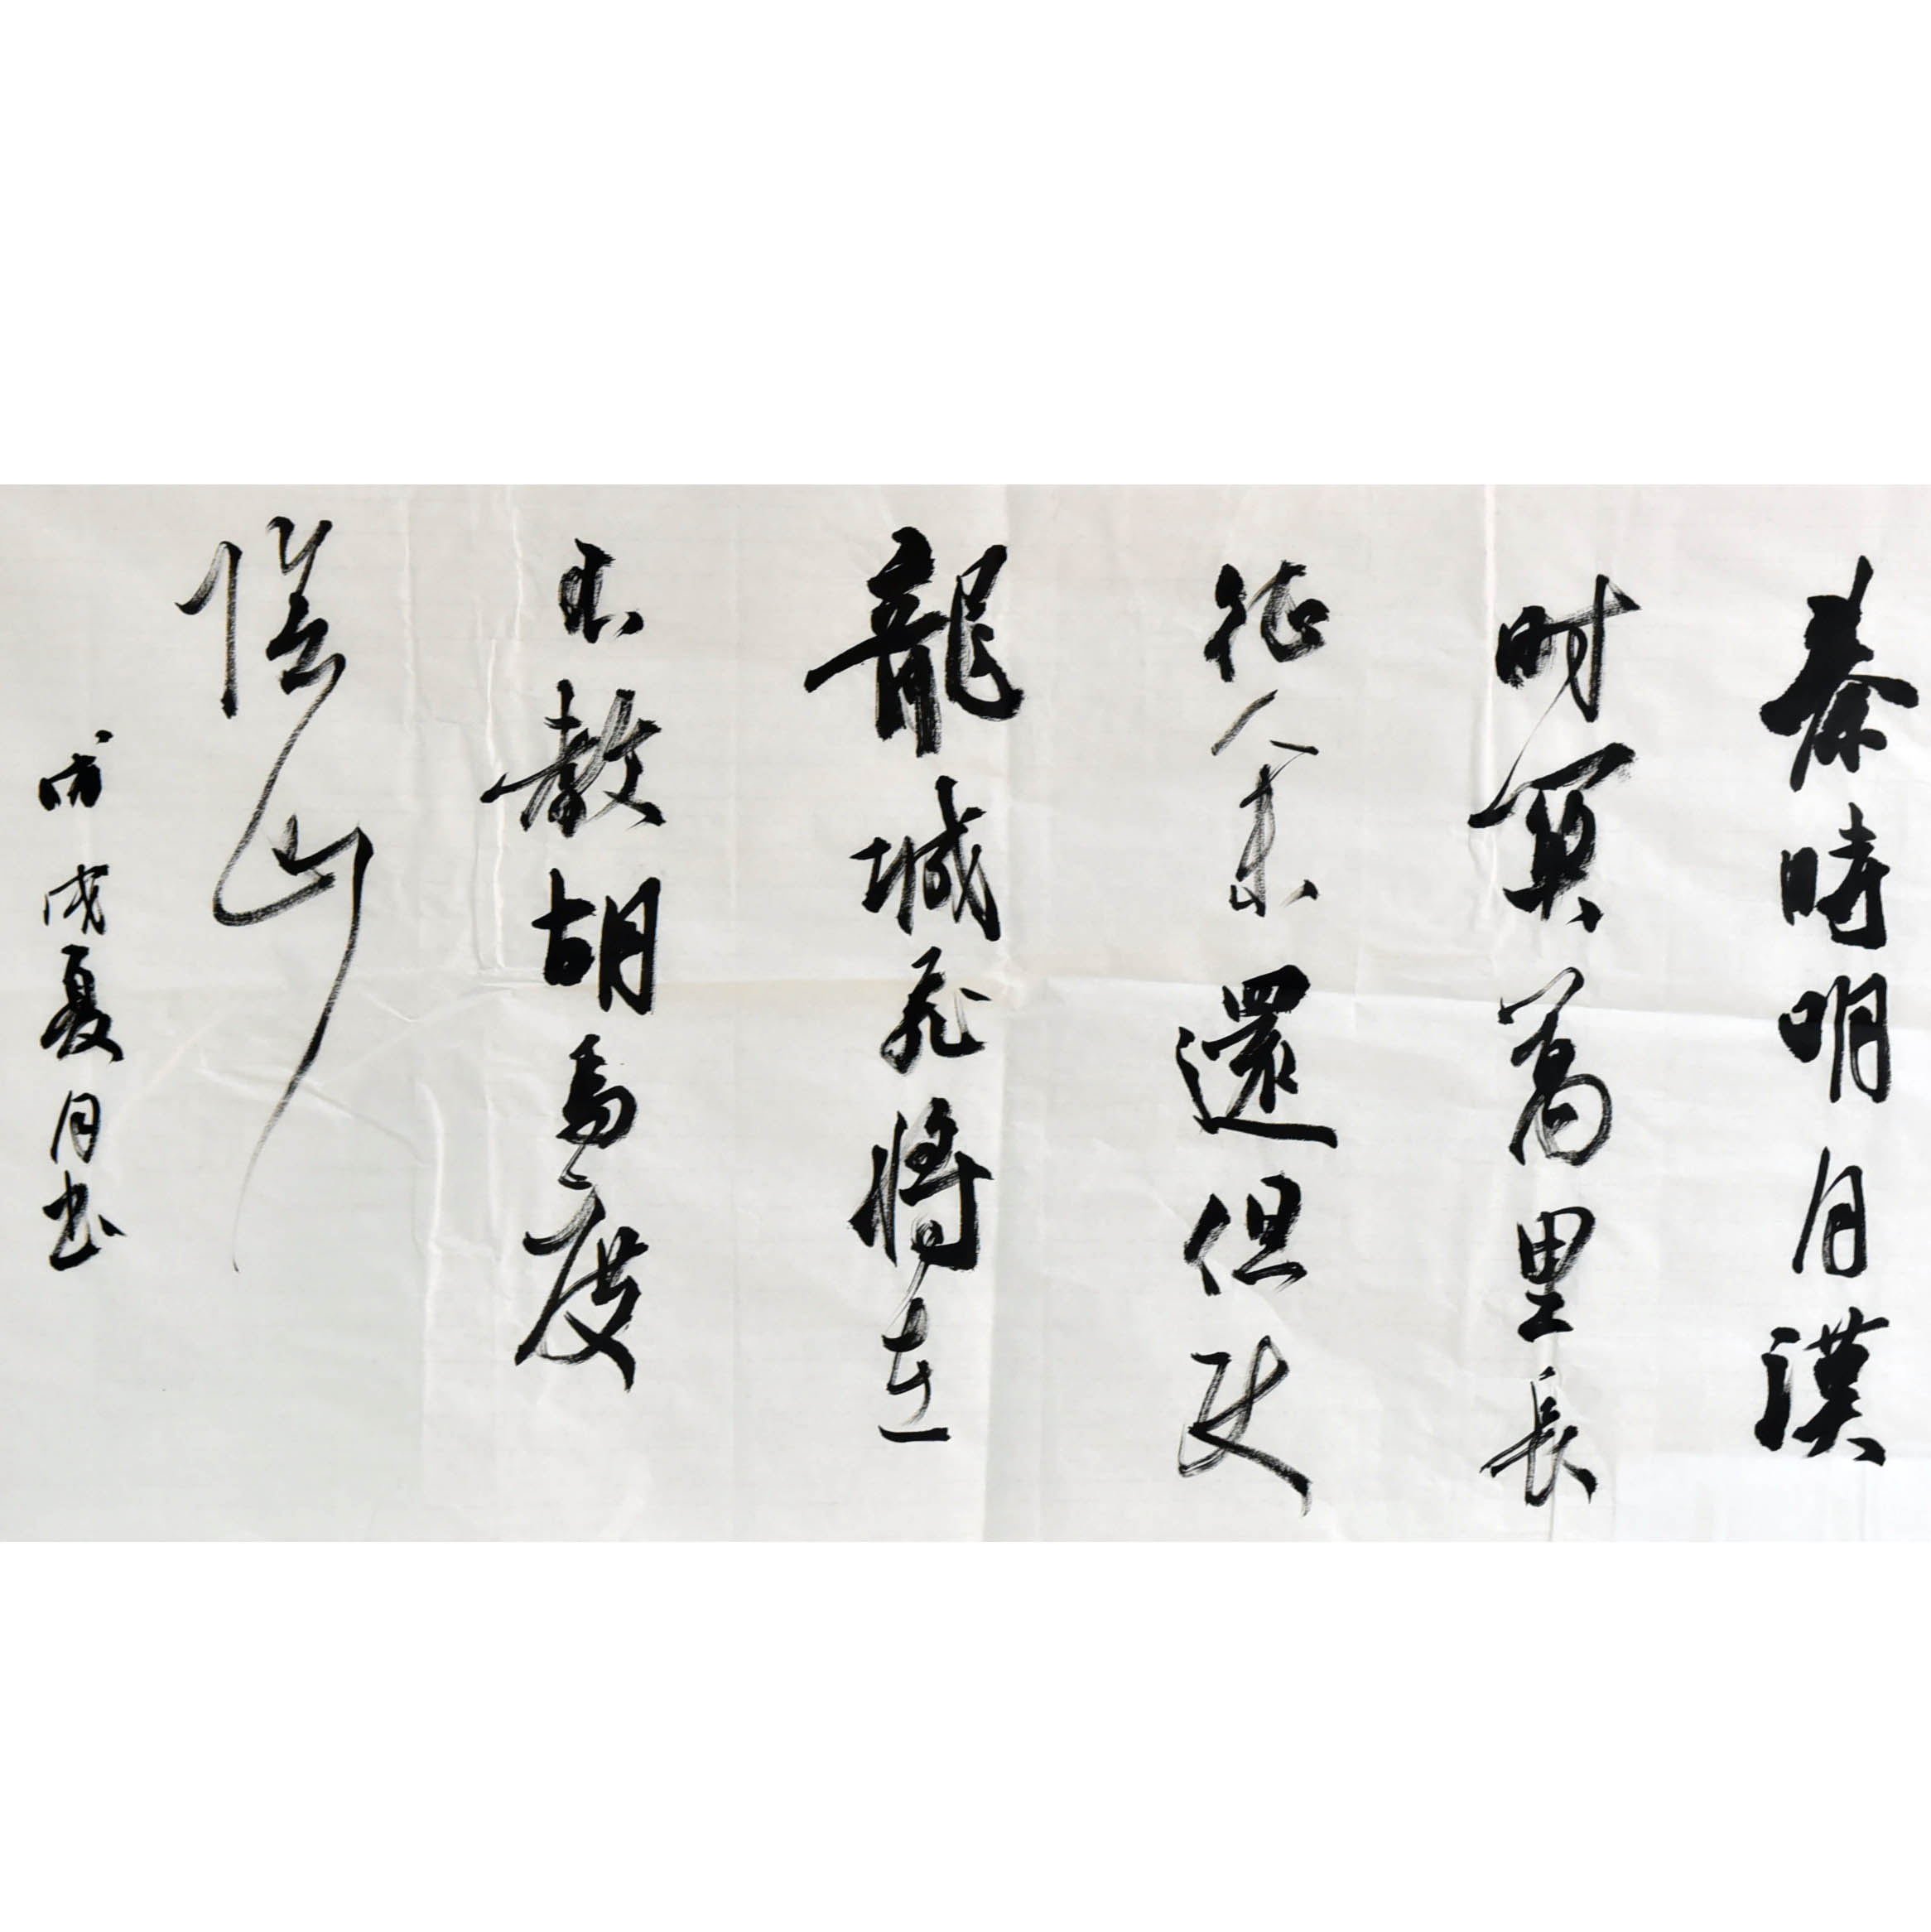 秦時明月漢
时關萬里長
征人未還但使
龍城飛將在
不教胡馬度
陰山
戊戌夏月书